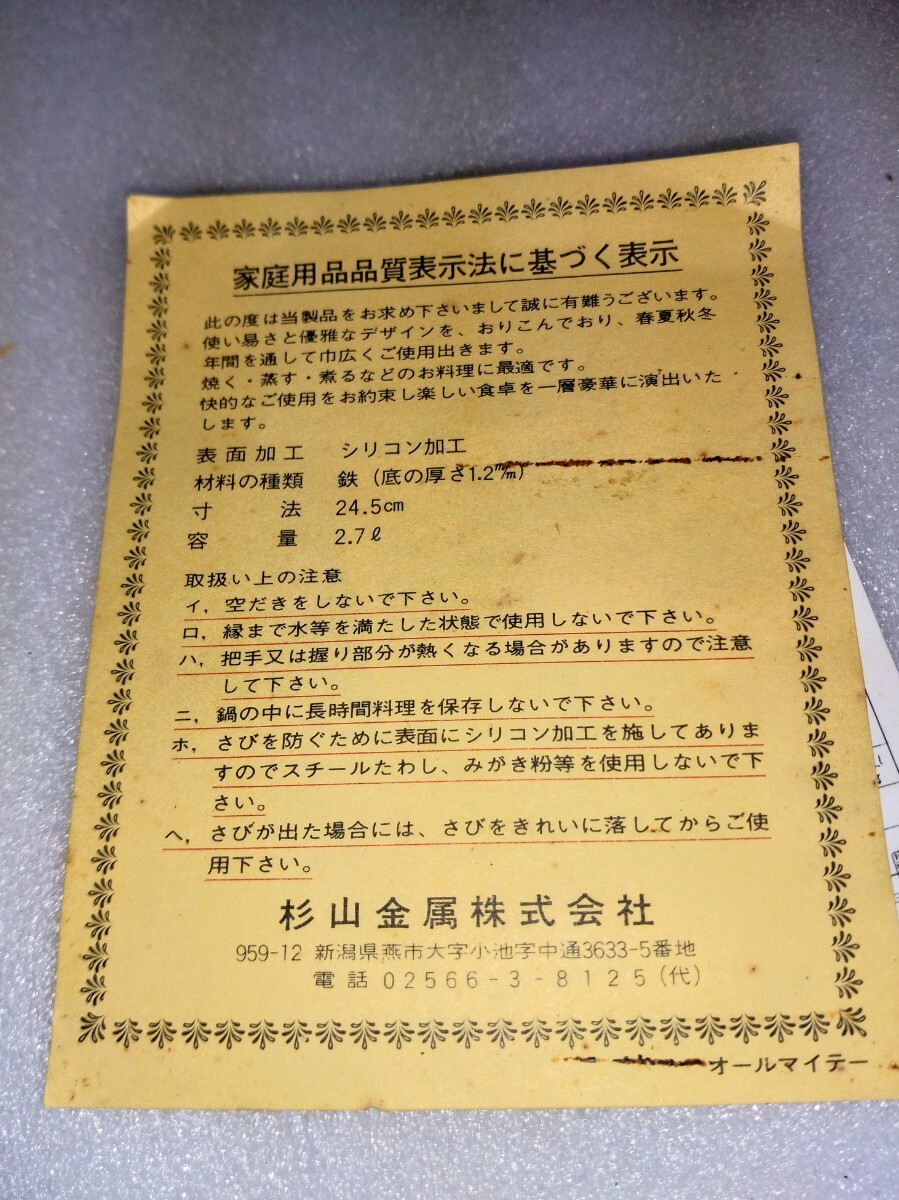 家庭用品品質表示法に基づく表示
此の度は当製品をお求め下さいまして誠に有難うございます。
使い易さと優雅なデザインを、おりこんでおり、春夏秋冬
年間を通して巾広くご使用出きます。
焼く・蒸す・煮るなどのお料理に最適です。
快的なご使用をお約束し楽しい食卓を一層豪華に演出いた
します。
表面加工 シリコン加工
材料の種類 鉄（底の厚さ1.2m/m）
寸法 24.5cm
容量 2.7ℓ
取扱い上の注意
イ，空だきをしないで下さい。
ロ，縁まで水等を満たした状態で使用しないで下さい。
ハ，把手又は握り部分が熱くなる場合がありますので注意
して下さい。
ニ，鍋の中に長時間料理を保存しないで下さい。
ホ，さびを防ぐために表面にシリコン加工を施してありま
すのでスチールたわし、みがき粉等を使用しないで下
さい。
ヘ，さびが出た場合には、さびをきれいに落してからご使
用下さい。
杉山金属株式会社
959-12 新潟県燕市大字小池字中通3633-5番地
電話 02566-3-8125（代）
オールマイテー